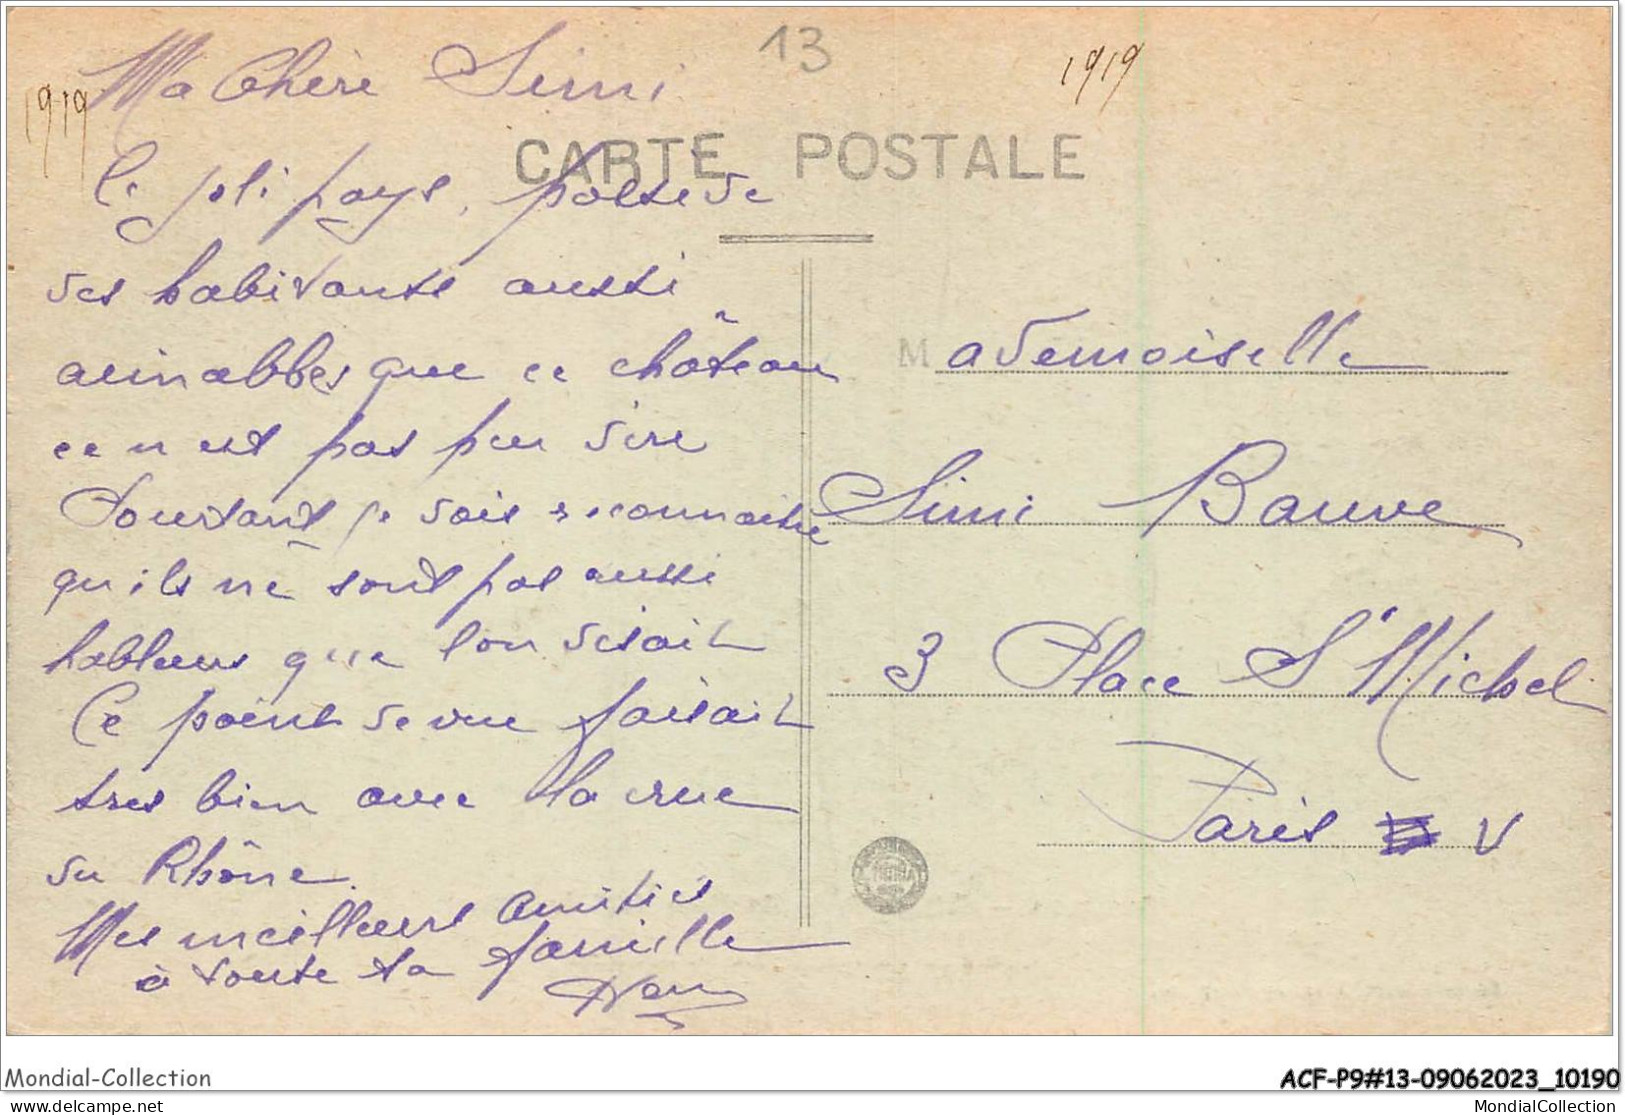 13
1919
1919
Ma Chère Simi
CARTE POSTALE
Ce joli pays, possède
des habitants aussi
aimabbles que ce château
ce n est pas peu dire
Pourtant je dois reconnaitre
qu ils ne sont pas aussi
hableurs que l on disait
Ce point de vue faisait
tres bien avec la crue
du Rhône.
Mes meilleures amitiés
à toute ta famille
Mademoiselle
Simi Bauve
3 Place St Michel
Paris V
Mondial-Collection
ACF-P9#13-09062023_10190
www.delcampe.net
MondialCollection